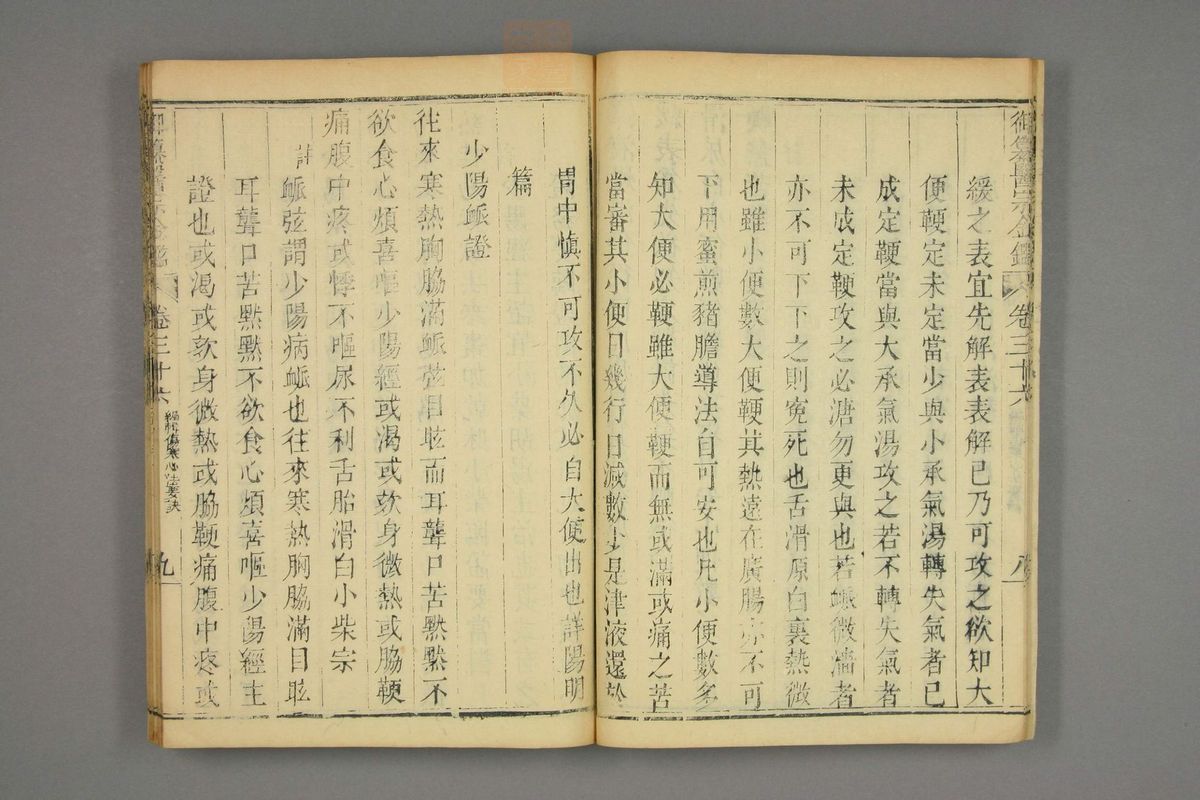 御纂醫宗金鑑 卷三十六 八
緩之表宜先解表表解已乃可攻之欲知大
便鞕定未定當少與小承氣湯轉失氣者已
成定鞕當與大承氣湯攻之若不轉失氣者
未成定鞕攻之必溏勿更與也若脈微濇者
亦不可下下之則寃死也舌滑原白裏熱微
也雖小便數大便鞕其熱遠在廣腸亦不可
下用蜜煎豬膽導法自可安也凡小便數多
知大便必鞕雖大便鞕而無或滿或痛之苦
當審其小便日幾行日減數少是津液還於
胃中慎不可攻不久必自大便出也詳陽明
篇
少陽脈證
徃來寒熱胸脇滿脈弦目眩而耳聾口苦默默不
欲食心煩喜嘔少陽經或渴或欬身微熱或脇鞕
痛腹中疼或悸不嘔尿不利舌胎滑白小柴宗
註 脈弦謂少陽病脈也往來寒熱胸脇滿目眩
耳聾口苦默默不欲食心煩喜嘔少陽經主
證也或渴或欬身微熱或脇鞕痛腹中疼或
御纂醫宗金鑑 卷三十六 編輯傷寒心法要訣 九